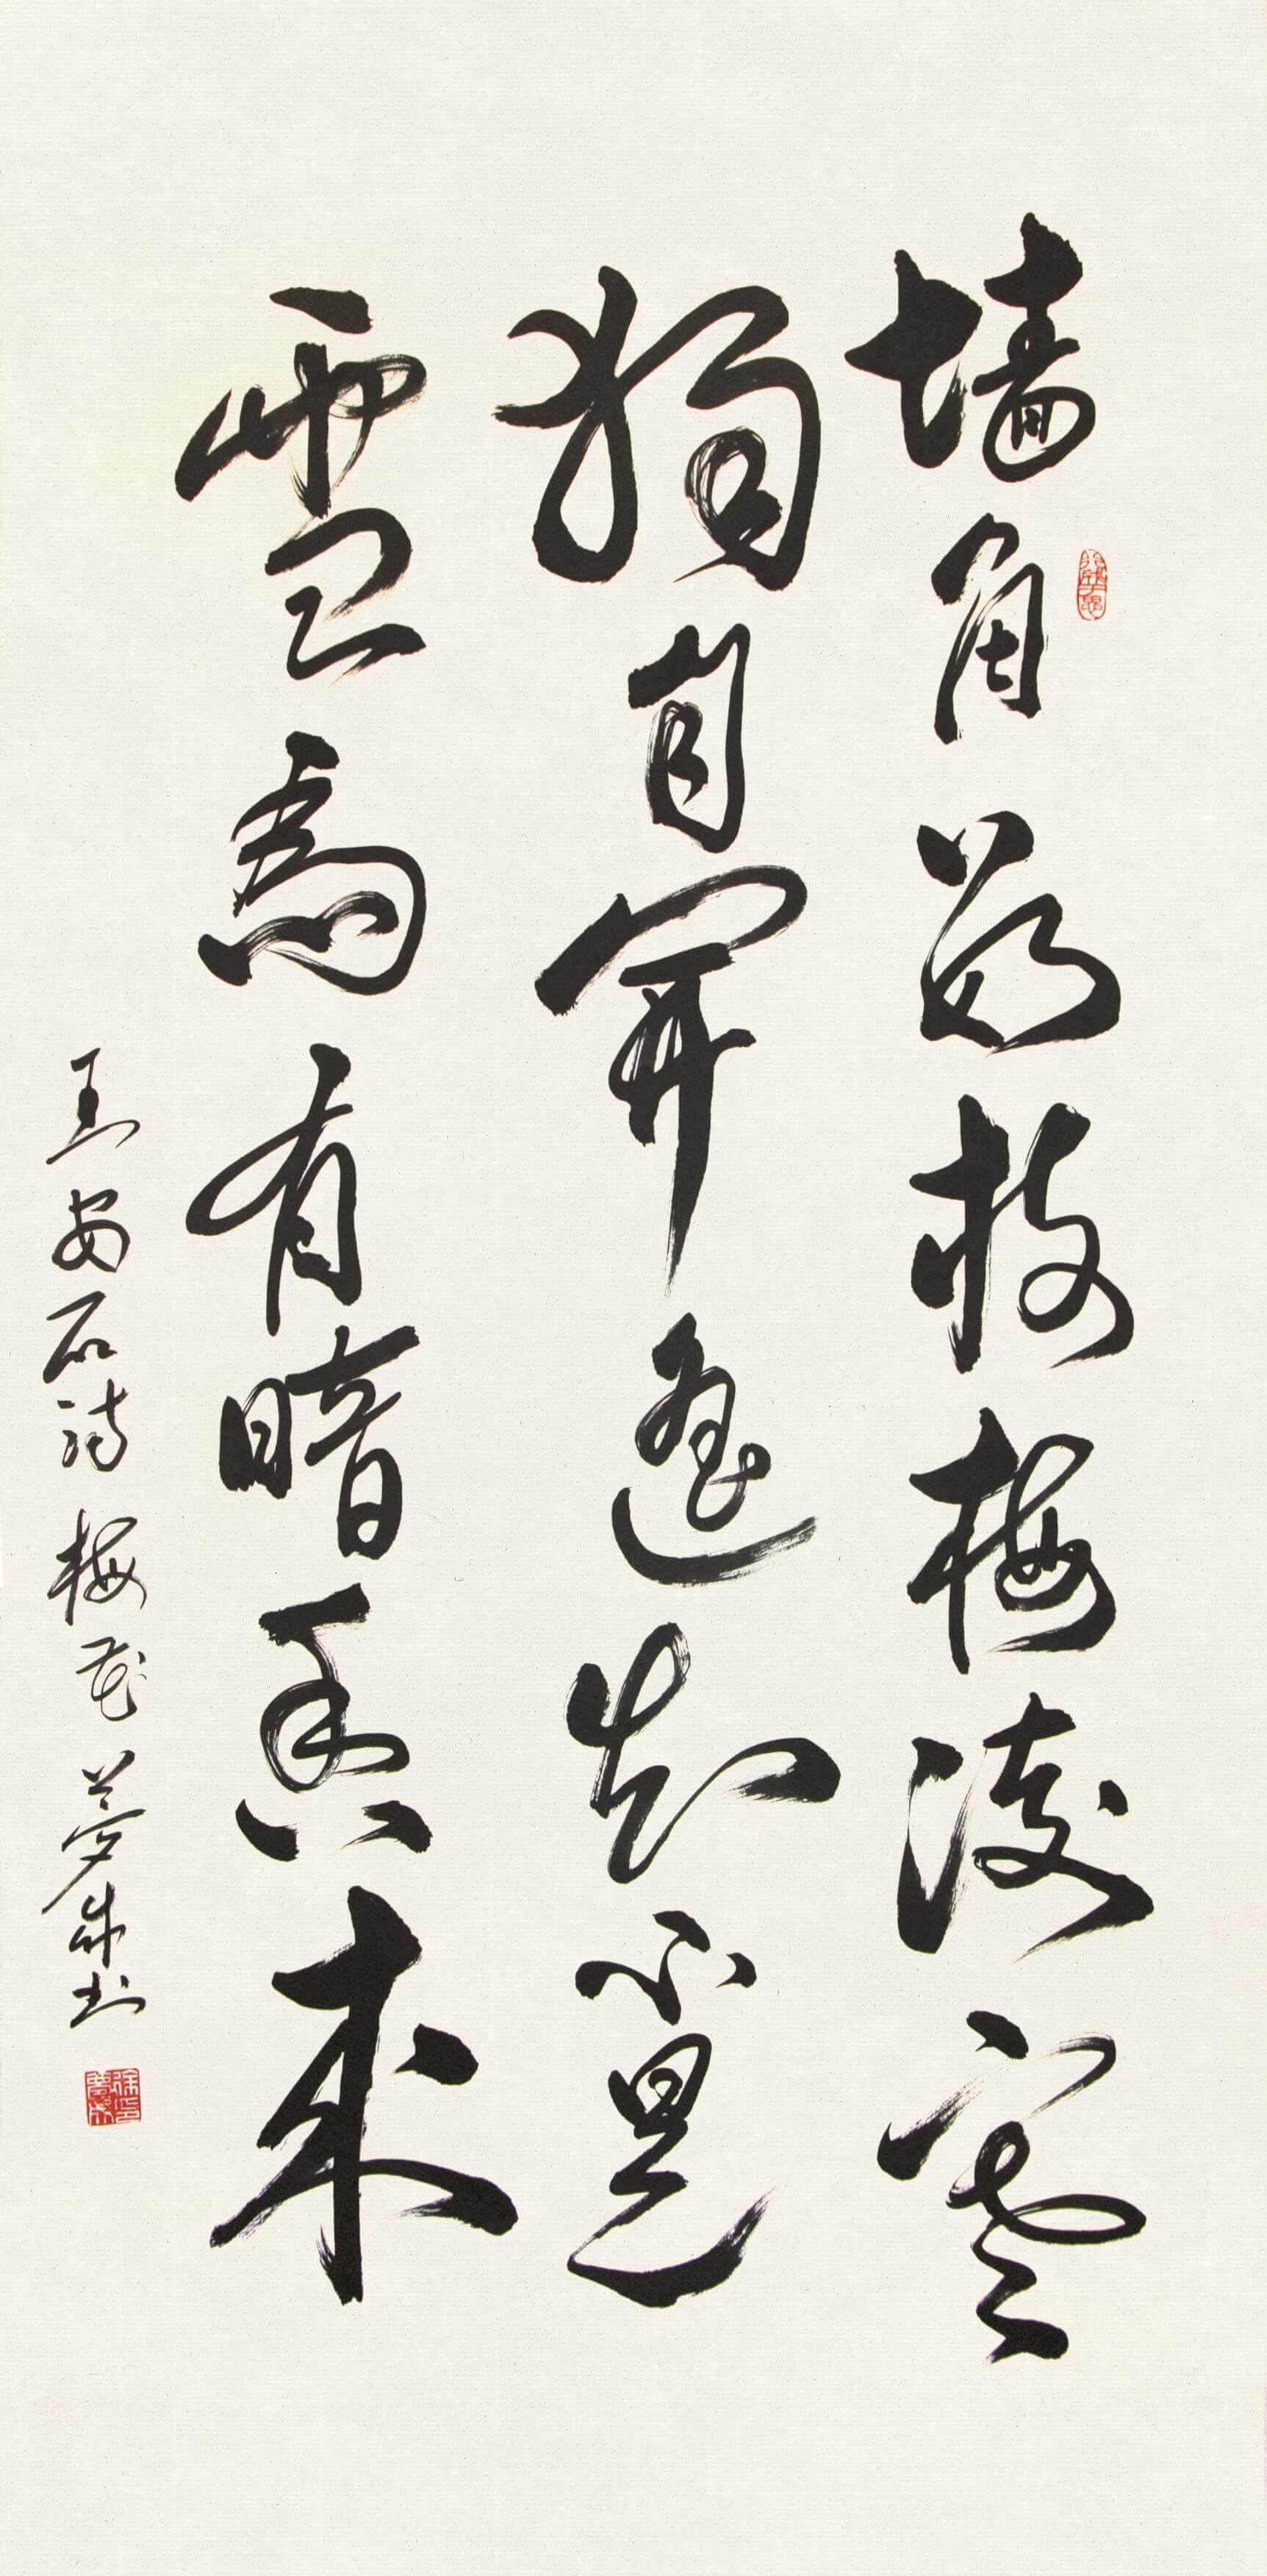 墙角数枝梅凌寒
独自开遥知不是
雪为有暗香来
王安石诗梅花梦成书